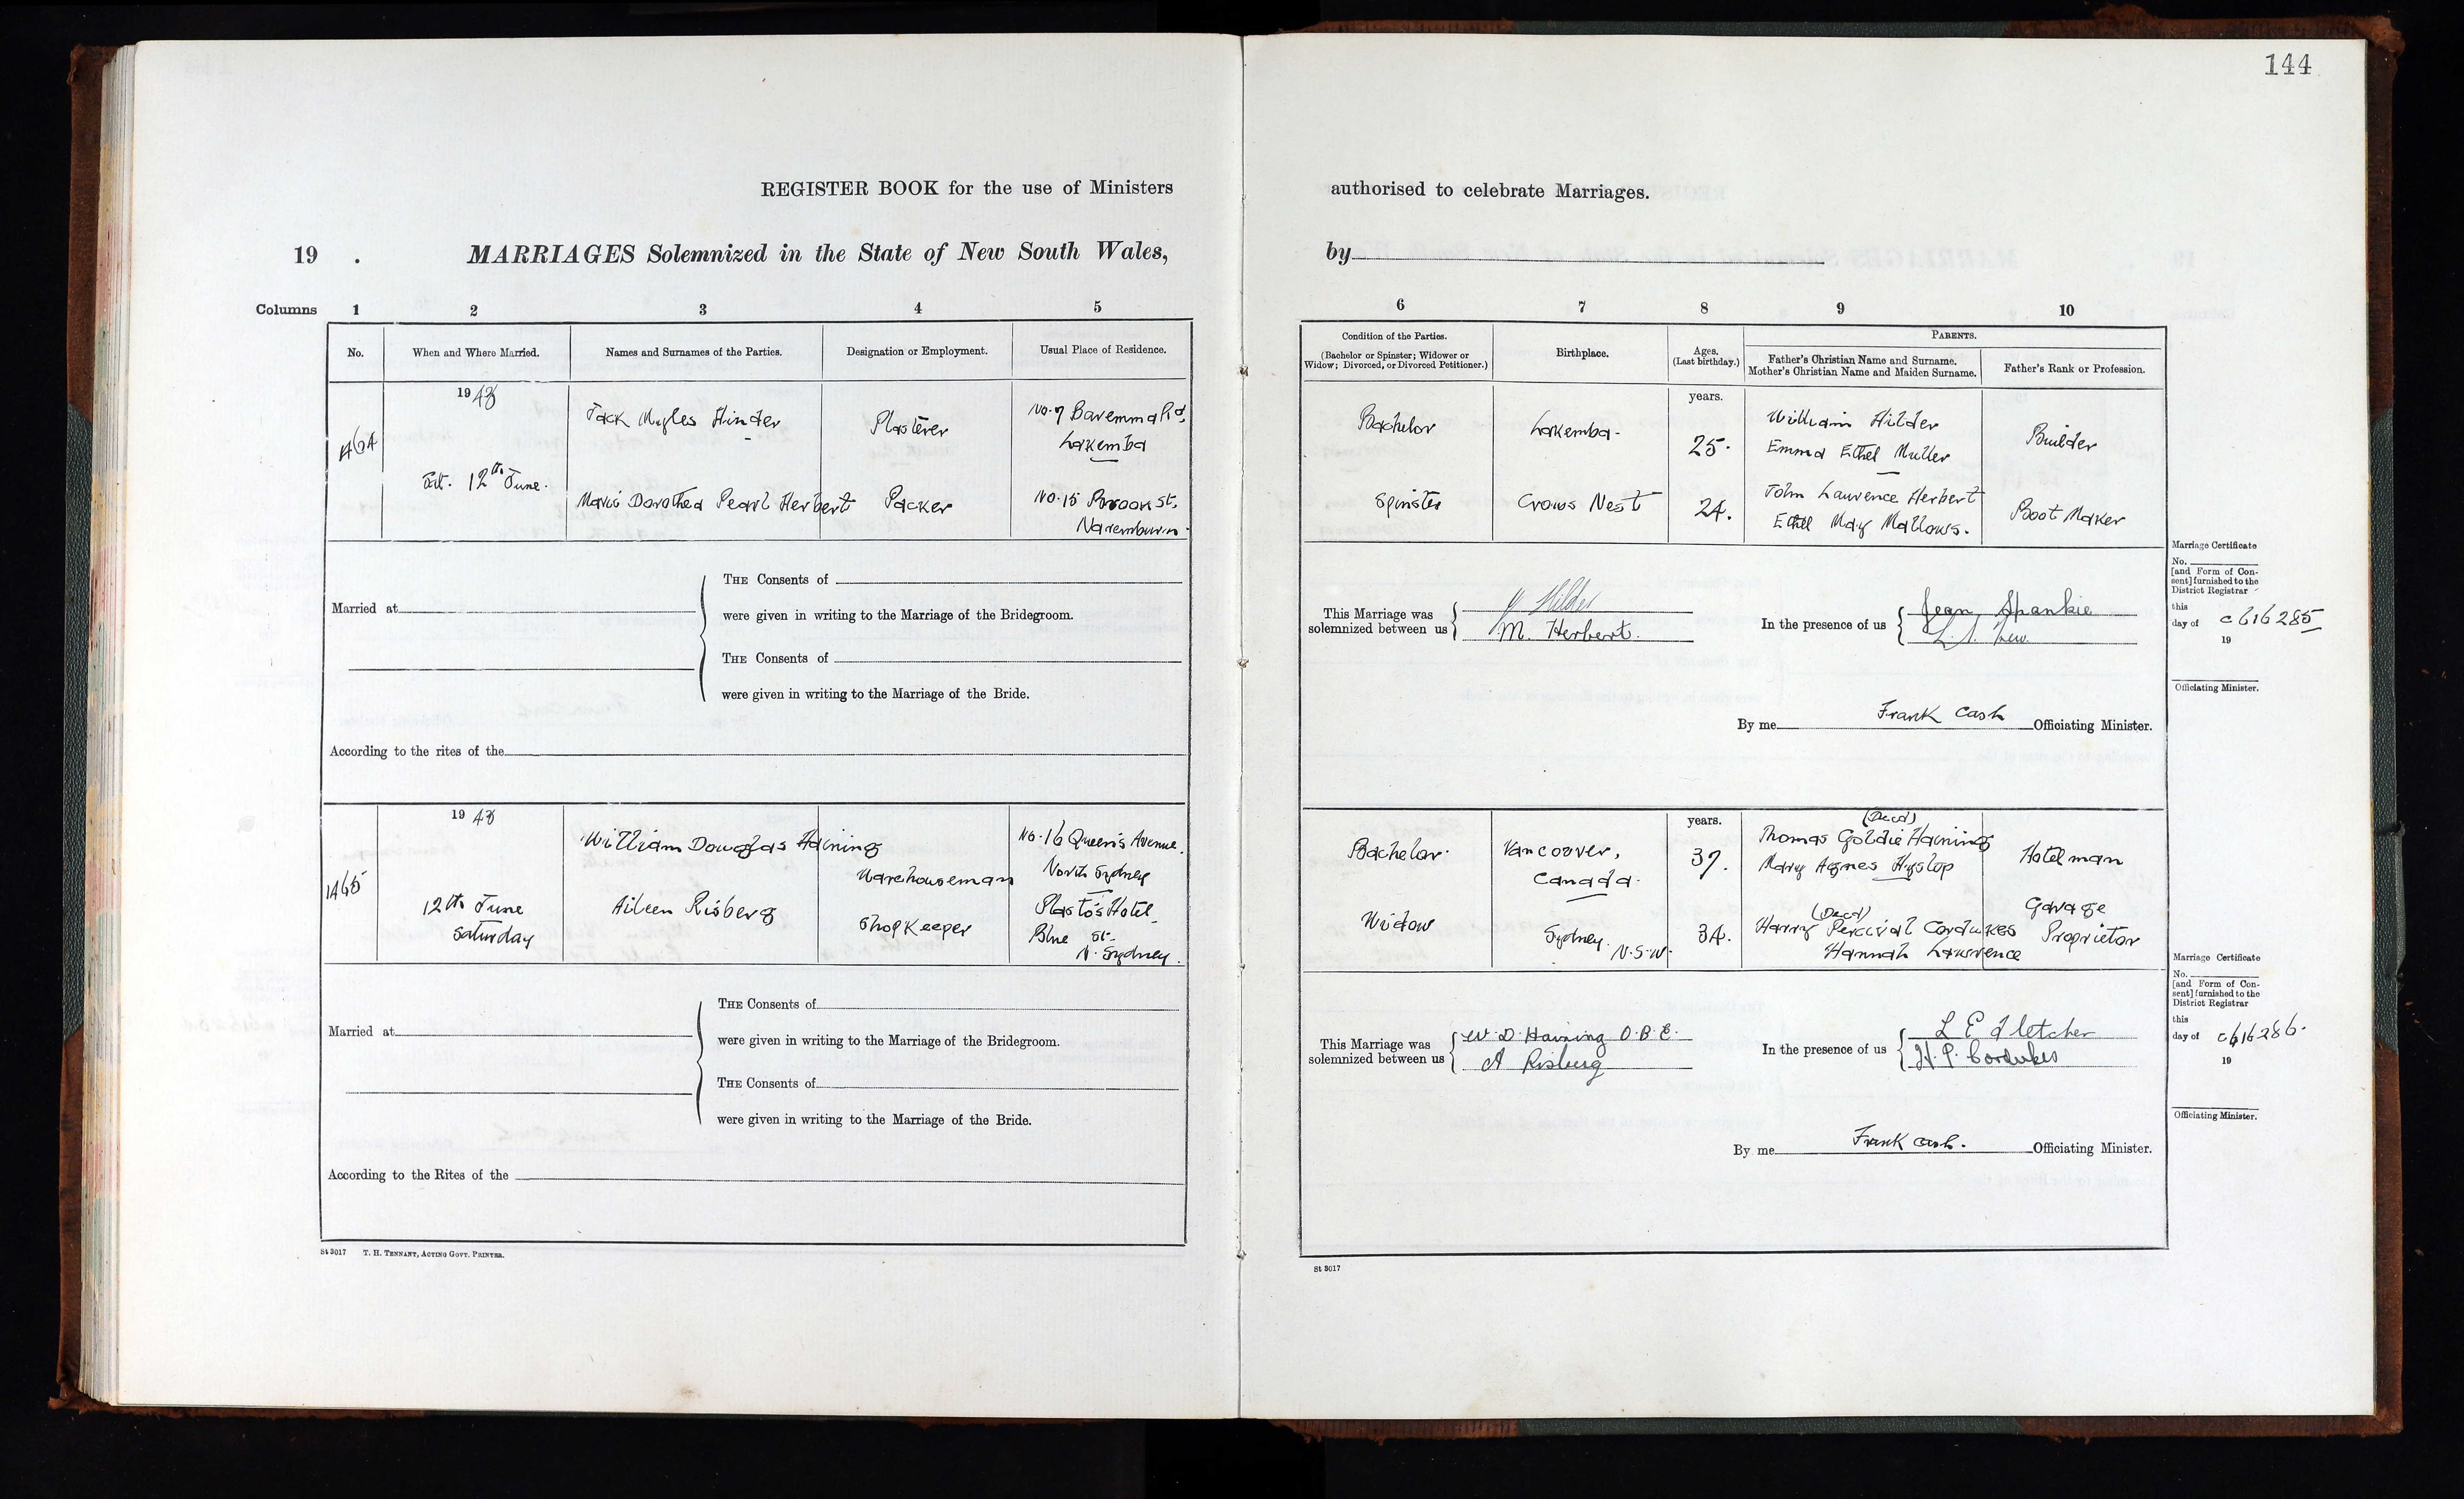 144
REGISTER BOOK for the use of Ministers authorised to celebrate Marriages.
19 . MARRIAGES Solemnized in the State of New South Wales, by
Columns 1 2 3 4 5 6 7 8 9 10
No.
When and Where Married.
Names and Surnames of the Parties.
Designation or Employment.
Usual Place of Residence.
Condition of the Parties.
(Bachelor or Spinster; Widower or
Widow; Divorced, or Divorced Petitioner.)
Birthplace.
Ages.
(Last birthday.)
PARENTS.
Father's Christian Name and Surname.
Mother's Christian Name and Maiden Surname.
Father's Rank or Profession.
1464
1948
Sat. 12th June.
Jack Myles Hinder
Plasterer
No. 7 Rd,
Lakemba
Mavis Dorothea Pearl Herbert
Packer
No. 15 Brook St,
Naremburn.
years.
Bachelor
Lakemba.
25.
William Hilder
Emma Ethel Muller
Builder
Spinster
Crows Nest
24.
John Laurence Herbert
Ethel May Mallows.
Boot Maker
Married at
THE Consents of
were given in writing to the Marriage of the Bridegroom.
THE Consents of
were given in writing to the Marriage of the Bride.
According to the rites of the
This Marriage was
solemnized between us
J Hilder
M. Herbert.
In the presence of us
Jean Spankie
By me Frank Cash Officiating Minister.
Marriage Certificate
No.
[and Form of Con-
sent] furnished to the
District Registrar
this
day of c616285
19
Officiating Minister.
1465
1948
12th June
Saturday
William Douglas Haining
Warehouseman
No. 16 Queen's Avenue.
North Sydney
Aileen Risberg
Shop Keeper
Plasto's Hotel
Blue St.
N. Sydney.
years.
Bachelor.
Vancouver,
Canada.
37.
(Decd)
Thomas Goldie Haining
Mary Agnes Hyslop
Hotel man
Widow
Sydney. N.S.W.
34.
(Decd)
Harry Percival Cordukes
Hannah Lawrence
Garage
Proprietor
Married at
THE Consents of
were given in writing to the Marriage of the Bridegroom.
THE Consents of
were given in writing to the Marriage of the Bride.
According to the Rites of the
This Marriage was
solemnized between us
W. D. Haining O.B.E.
A Risberg
In the presence of us
L E Fletcher
H. P. Cordukes
By me Frank Cash. Officiating Minister.
Marriage Certificate
No.
[and Form of Con-
sent] furnished to the
District Registrar
this
day of c616286.
19
Officiating Minister.
St 3017 T. H. TENNANT, ACTING GOVT. PRINTER.
St 3017